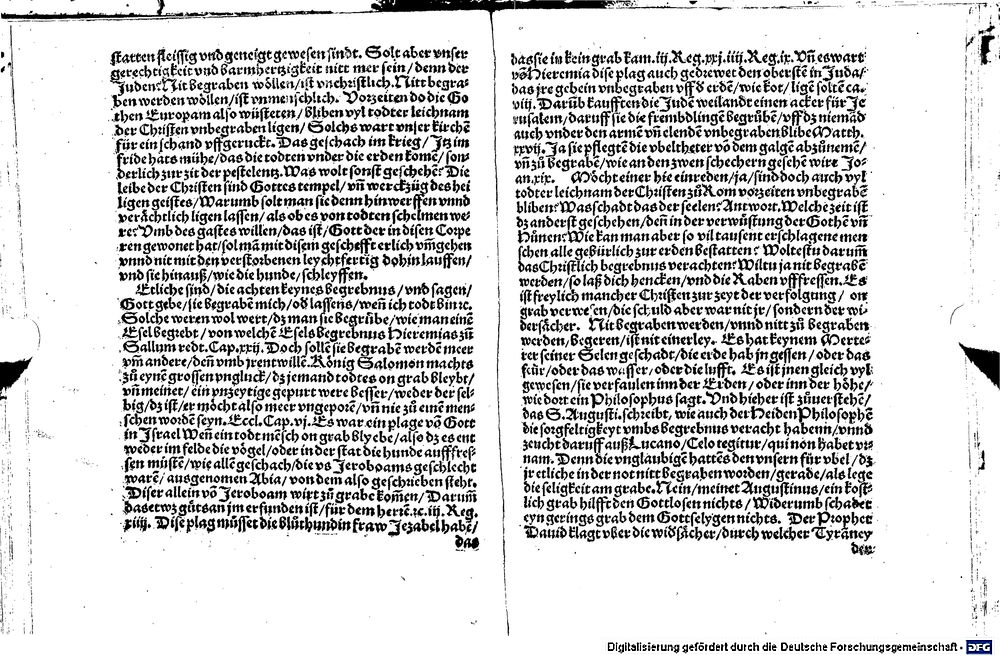 statten fleissig vnd geneigt gewesen sindt. Solt aber vnser
gerechtigkeit vnd barmhertzigkeit nitt mer sein / denn der
Juden? Nit begraben wöllen / ist vnchristlich. Nitt begra-
ben werden wöllen / ist vnmenschlich. Vorzeiten do die Go
then Europam also wüsteten / bliben vyl todter leichnam
der Christen vnbegraben ligen / Solchs wart vnser kirchē
für ein schand vffgeruckt. Das geschach im krieg / Itz im
fride hats mühe / das die todten vnder die erden komē / son-
derlich zur zit der pestelentz. Was wolt sonst geschehē? Die
leibe der Christen sind Gottes tempel / vn̄ werckzüg des hei
ligen geistes / Warumb solt man sie denn hinwerffen vnnd
verächtlich ligen lassen / als ob es von todten schelmen we-
re? Vmb des gastes willen / das ist / Gott der in disen Corpe
ren gewonet hat / sol mā mit disem geschefft erlich vm̄gehen
vnnd nit mit den verstorbenen leychtfertig dohin lauffen /
vnd sie hinauß / wie die hunde / schleyffen.
Etliche sind / die achten keynes begrebnus / vnd sagen /
Gott gebe / sie begrabē mich / od lassens / weñ ich todt bin ꝛc.
Solche weren wol wert / dz man sie begrübe / wie man einē
Esel begrebt / von welchē Esels begrebnus Hieremias zů
Sallum redt. Cap. xxij. Doch sollē sie begrabē werdē meer
vm̄ andere / deñ vmb jrentwillē. König Salomon machts
zů eynē grossen vngluck / dz jemand todtes on grab bleybt /
vn̄ meinet / ein vnzeytige gepurt were besser / weder der sel-
big / dz ist / er möcht also meer vngeporē / vn̄ nie zů einē men-
schen wordē seyn. Eccl. Cap. vj. Es war ein plage vō Gott
in Jsrael Weñ ein todt mēsch on grab blyebe / also dz es ent
weder im felde die vögel / oder in der stat die hunde aufffres-
sen müstē / wie allē geschach / die vs Jeroboams geschlecht
warē / ausgenomen Abia / von dem also geschrieben steht.
Diser allein vō Jeroboam wirt zů grabe kom̄en / Darum̄
das etwz gůts an jm erfunden ist / für dem herrē. ꝛc. iij. Reg.
xiiij. Dise plag můsset die blůthundin fraw Jezabel habē /
das
das sie in kein grab kam. iij. Reg. xxj. iiij. Reg. ix. Vn̄ es wart
vō Hieremia dise plag auch gedrewet den oberstē in Juda /
das jre gebein vnbegraben vff d̄ erdē / wie kot / ligē soltē ca.
viij. Darūb kaufften die Judē weilandt einen acker für Je
rusalem / daruff sie die frembdlingē begrübē / vff dz niemād
auch vnder den armē vn̄ elendē vnbegraben blibe Matth.
xxvij. Ja sie pflegtē die vbeltheter vō dem galgē abzůnemē /
vn̄ zů begrabē / wie an den zwen schechern geschē wirt Jo-
an. xix. Möcht einer hie einreden / ja / sind doch auch vyl
todter leichnam der Christen zů Rom vorzeiten vnbegrabē
bliben? Was schadt das der seelen? Antwort. Welche zeit ist
dz anderst geschehen / deñ in der verwüstung der Gothē vn̄
Hünen? Wie kan man aber so vil tausent erschlagene men
schen alle gebürlich zur erden bestatten? Woltestu darum̄
das Christlich begrebnus verachten? Wiltu ja nit begrabē
werden / so laß dich hencken / vnd die Raben vfffressen. Es
ist freylich mancher Christen zur zeyt der verfolgung / on
grab verwesen / die schuld aber war nit jr / sondern der wi-
dersächer. Nit begraben werden / vnnd nitt zů begraben
werden / begeren / ist nit einerley. Es hat keynem Merte-
rer seiner Selen geschadt / die erde hab jn gessen / oder das
feür / oder das wasser / oder die lufft. Es ist jnen gleich vyl
gewesen / sie verfaulen inn der Erden / oder inn der höhe /
wie dort ein Philosophus sagt. Vnd hieher ist zůuerstehē /
das S. Augusti. schreibt, wie auch der Heiden Philosophē
die sorgfeltigkeyt vmbs begrebnus veracht habenn / vnnd
zeucht daruff auß Lucano / Celo tegitur / qui non habet vr-
nam. Denn die vnglaubigē hattēs den vnsern für vbel / dz
jr etliche in der not nitt begraben worden / gerade / als lege
die seligkeit am grabe. Nein / meinet Augustinus / ein kost-
lich grab hilfft den Gottlosen nichts / Widerumb schadet
eyn gerings grab dem Gottselygen nichts. Der Prophet
Dauid klagt vber die widsächer / durch welcher Tyranney
der
Digitalisierung gefördert durch die Deutsche Forschungsgemeinschaft - DFG